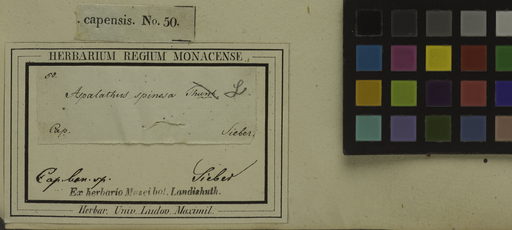 . capensis. No. 50.
HERBARIUM REGIUM MONACENSE.
50.
Aspalathus spinosa Thunb L.
Cap. Sieber.
Cap. bon. sp. Sieber
Ex herbario Musei bot. Landishuth.
Herbar. Univ. Ludov. Maximil.